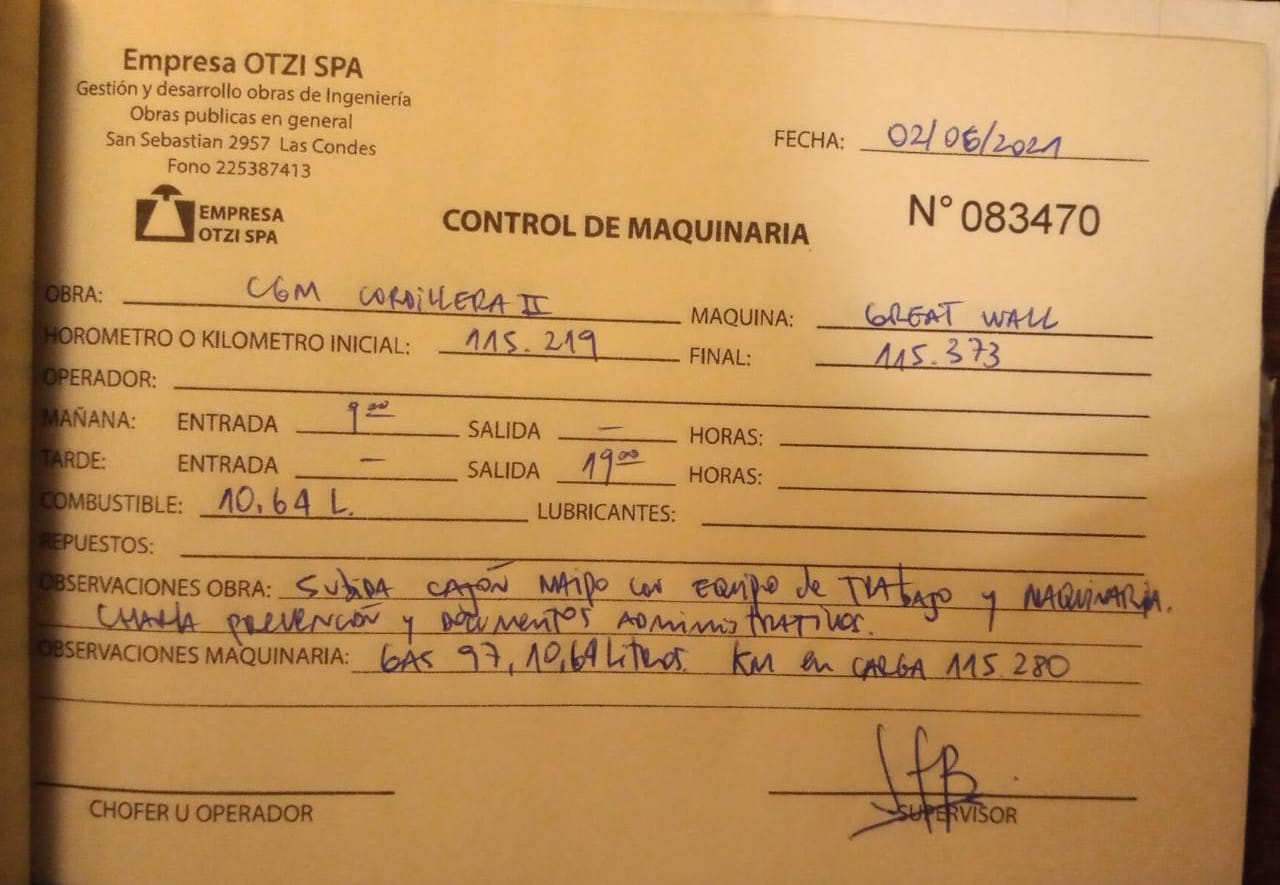 Empresa OTZI SPA
Gestión y desarrollo obras de Ingeniería
Obras publicas en general
San Sebastian 2957 Las Condes
Fono 225387413
FECHA: 02/06/2021
EMPRESA
OTZI SPA
CONTROL DE MAQUINARIA
N° 083470
OBRA: CGM CORDILLERA II MAQUINA: GREAT WALL
HOROMETRO O KILOMETRO INICIAL: 115.219 FINAL: 115.373
OPERADOR:
MAÑANA: ENTRADA 9:00 SALIDA — HORAS:
TARDE: ENTRADA — SALIDA 19:00 HORAS:
COMBUSTIBLE: 10,64 L. LUBRICANTES:
REPUESTOS:
OBSERVACIONES OBRA: SUBIDA CAJÓN MAIPO con EQUIPO de TRABAJO y MAQUINARIA.
CHARLA PREVENCIÓN y DOCUMENTOS ADMINISTRATIVOS.
OBSERVACIONES MAQUINARIA: GAS 97, 10,64 Litros. KM en CARGA 115.280
CHOFER U OPERADOR
SUPERVISOR